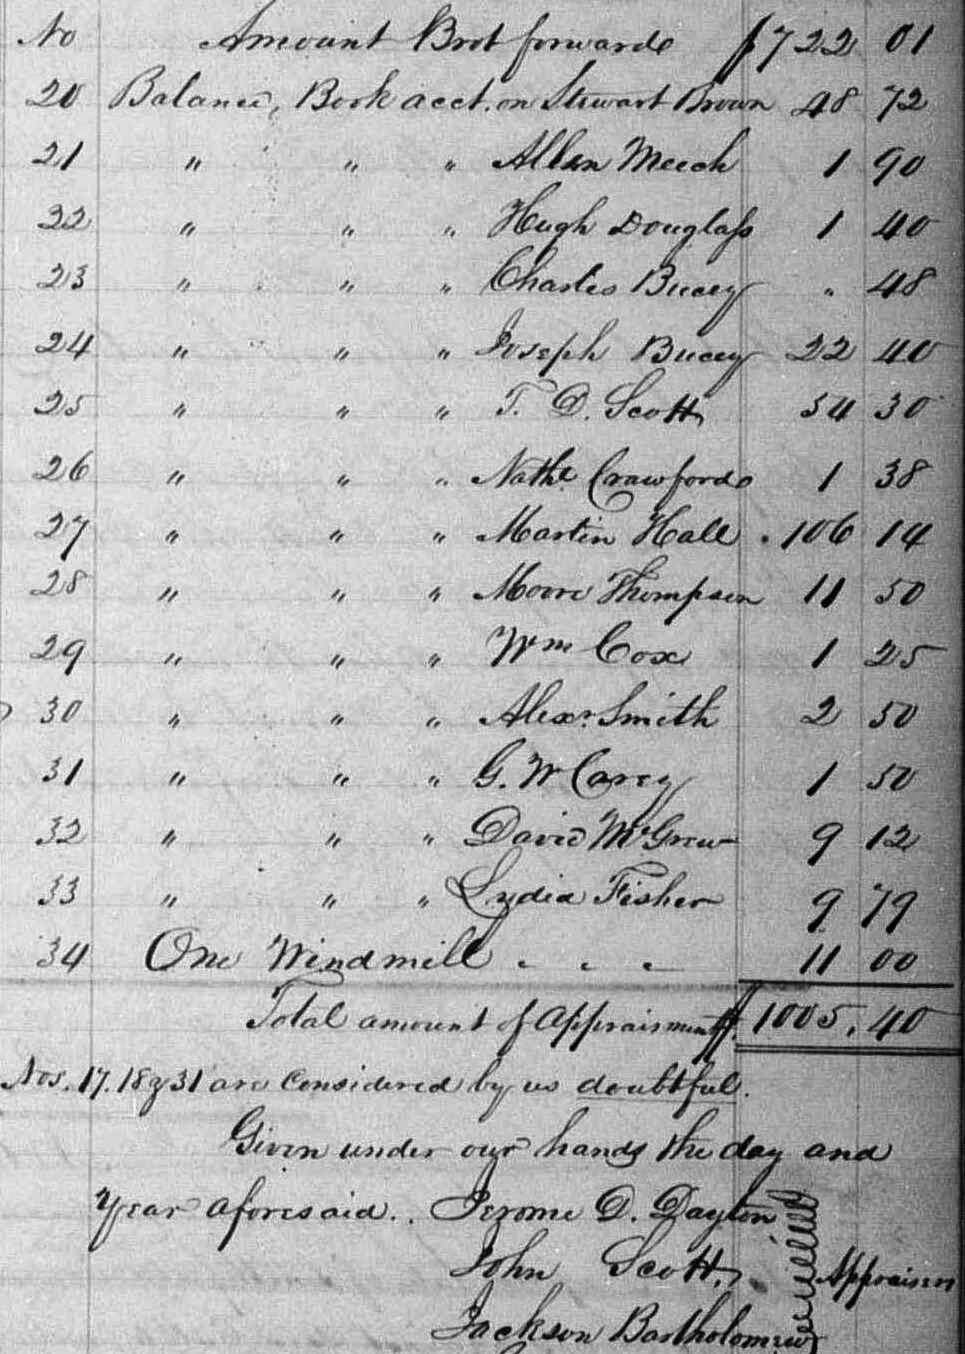 No Amount Brot forward $722 01
20 Balance, Book acct. on Stewart Brown 48 72
21 " " " Allen Meech 1 90
22 " " " Hugh Douglass 1 40
23 " " " Charles Bucey " 48
24 " " " Joseph Bucey 22 40
25 " " " T. D. Scott 54 30
26 " " " Nathl Crawford 1 38
27 " " " Martin Hall 106 14
28 " " " Moore Thompson 11 50
29 " " " Wm Cox 1 25
30 " " " Alexr Smith 2 50
31 " " " G. W Carey 1 50
32 " " " David McGrew 9 12
33 " " " Lydia Fisher 9 79
34 One Windmill . . . 11 00
Total amount of Appraisment $ 1005.40
Nos. 17. 18 & 31 are considered by us doubtful.
Given under our hands the day and
Year aforesaid.. Jerome D. Dayton
John Scott. Appraisers
Jackson Bartholomew